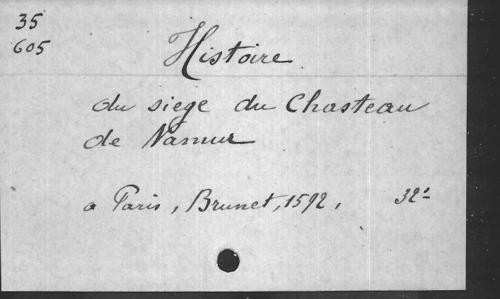 35
605
Histoire
du siege du Chasteau
de Namur
a Paris, Brunet, 1592, 32°